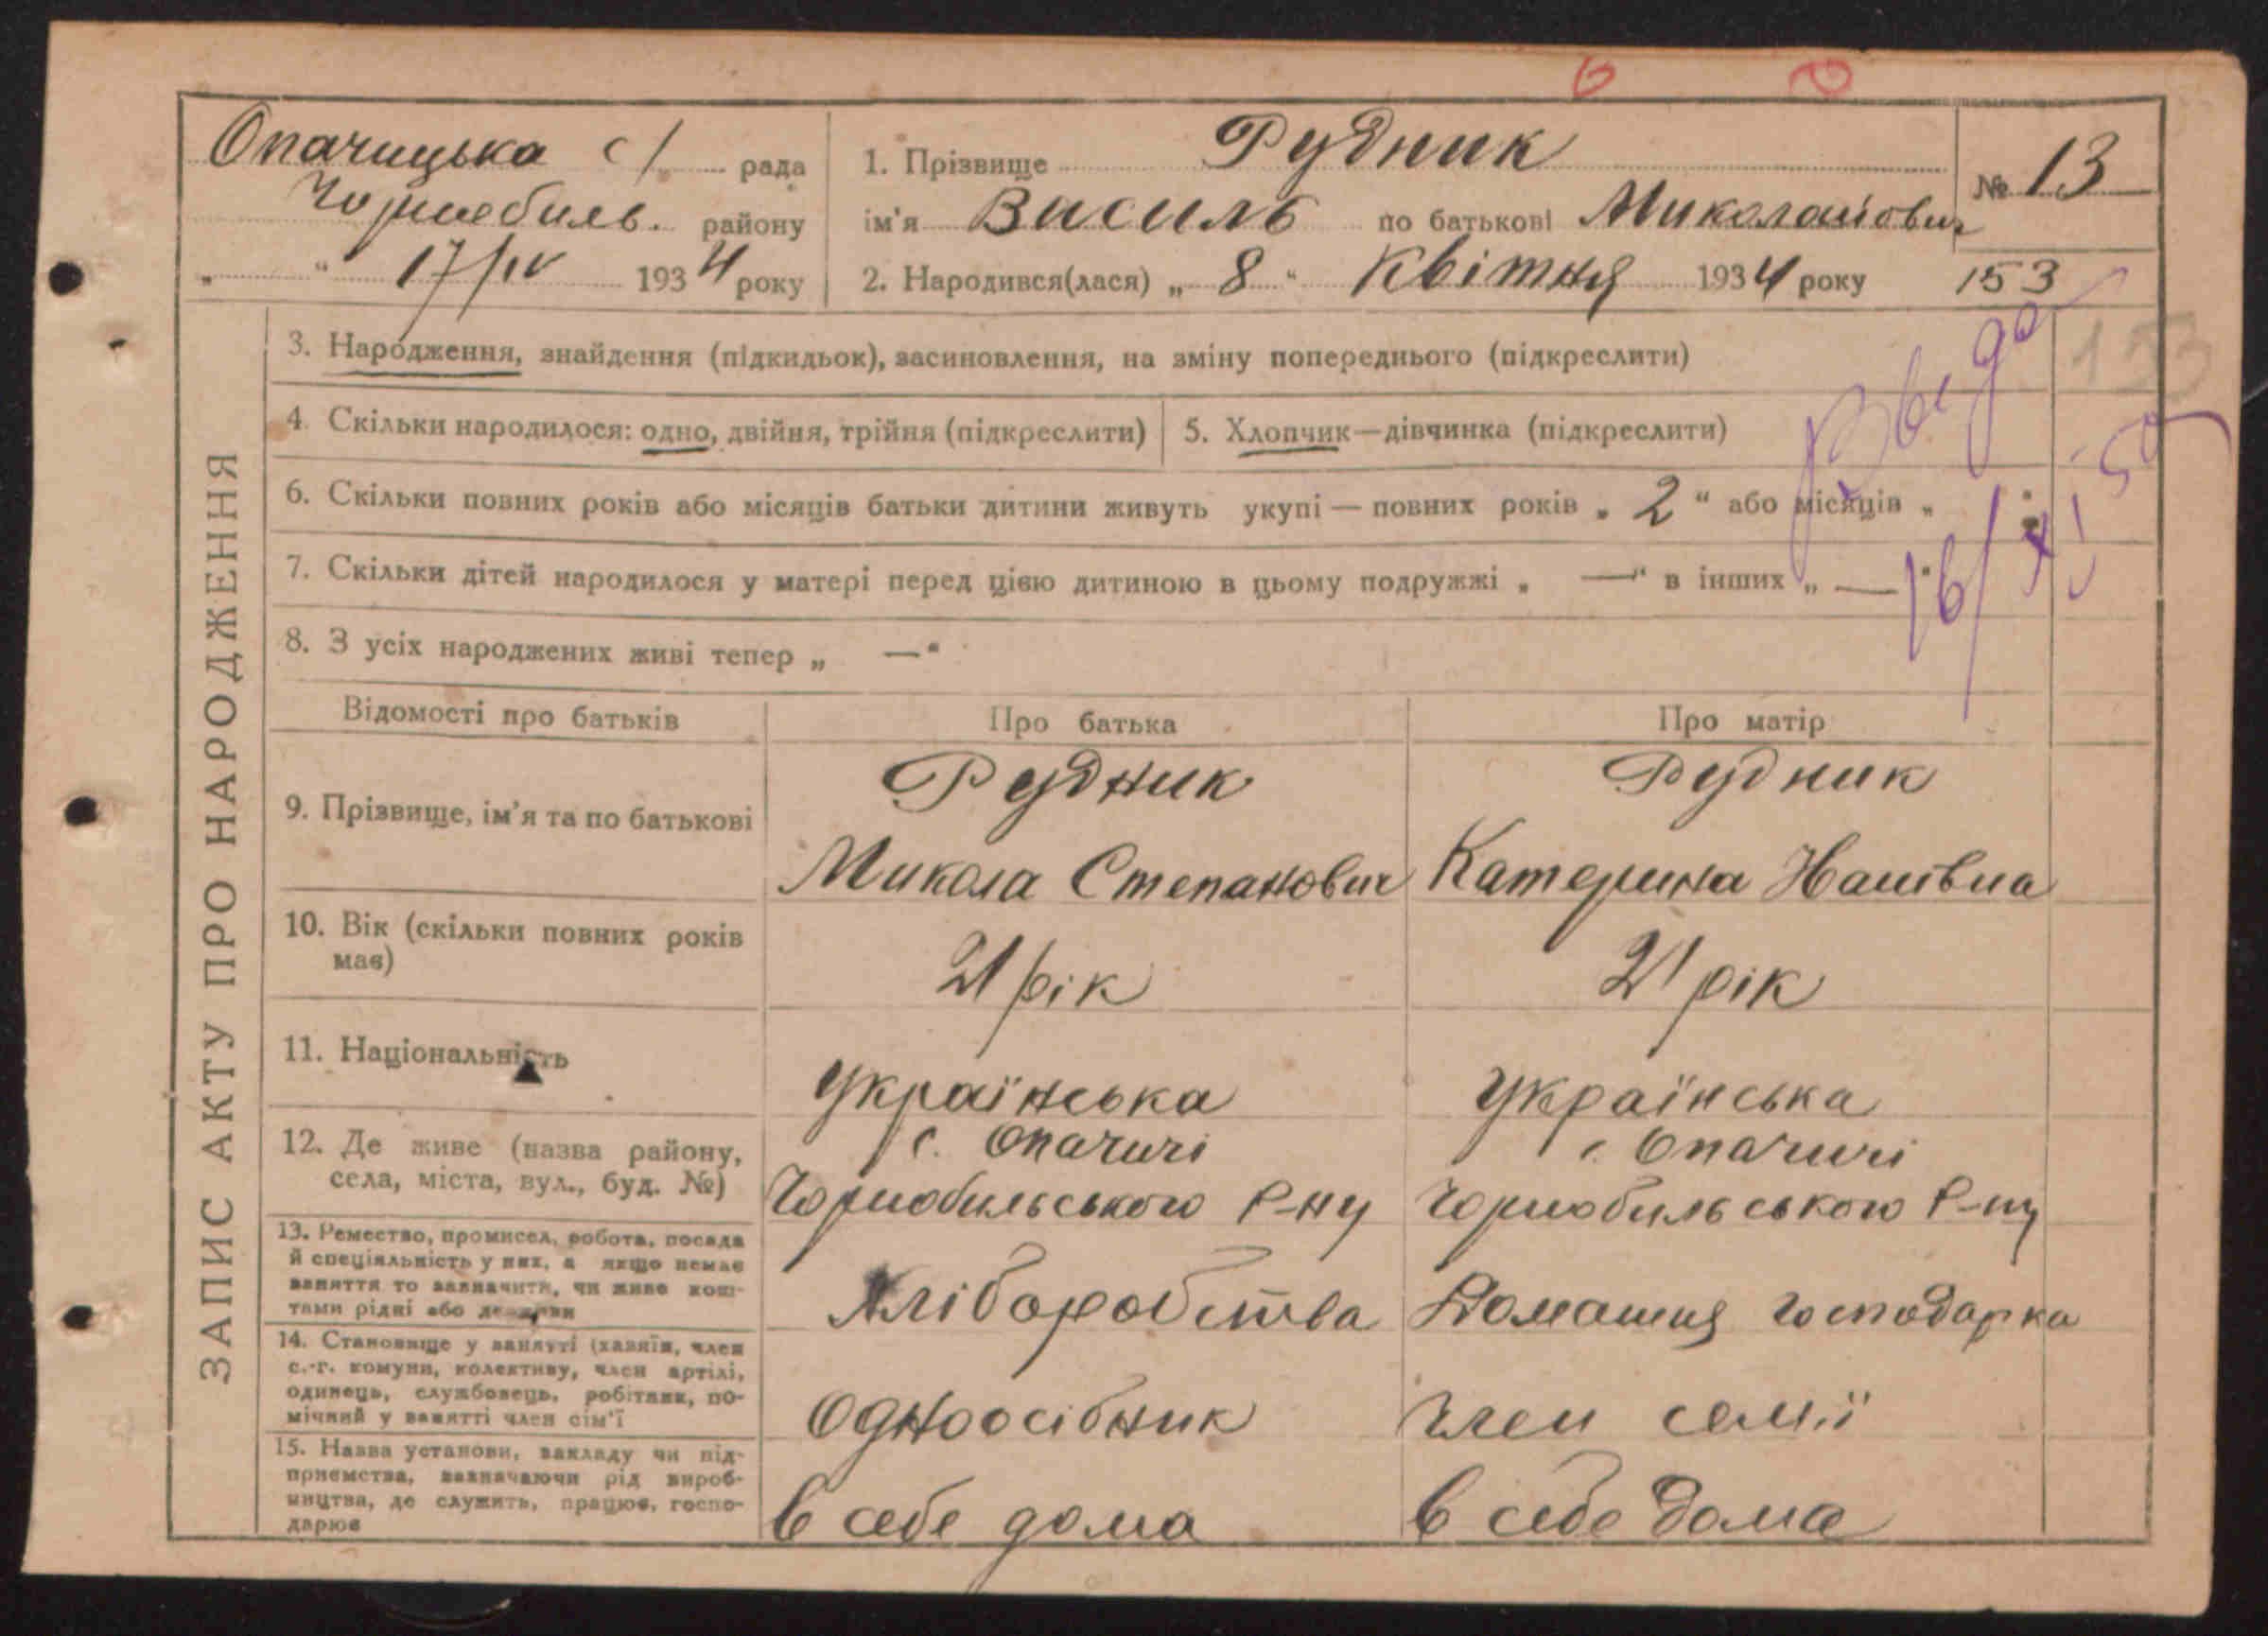 Опачицька с/ рада
Чорнобиль. району
„ “ 17/IV 1934 року
1. Прізвище Рудник
ім'я Василь по батькові Миколайович
2. Народився(лася) „ 8 “ Квітня 1934 року
№ 13
153
ЗАПИС АКТУ ПРО НАРОДЖЕННЯ
3. Народження, знайдення (підкидьок), засиновлення, на зміну попереднього (підкреслити)
153
4. Скільки народилося: одно, двійня, трійня (підкреслити)
5. Хлопчик—дівчинка (підкреслити)
6. Скільки повних років або місяців батьки дитини живуть укупі — повних років „ 2 “ або місяців „ “
7. Скільки дітей народилося у матері перед цією дитиною в цьому подружжі „ — “ в інших „ — “
16/XI 50
8. З усіх народжених живі тепер „ — “
Відомості про батьків
Про батька
Про матір
9. Прізвище, ім'я та по батькові
Рудник
Микола Степанович
Рудник
Катерина
10. Вік (скільки повних років
має)
21 рік
21 рік
11. Національність
Українська
Українська
12. Де живе (назва району,
села, міста, вул., буд. №)
с. Опачичі
Чорнобильського Р-ну
с. Опачичі
Чорнобильського Р-ну
13. Ремество, промисел, робота, посада
й спеціяльність у них, а якщо немає
заняття то зазначити, чи живе кош-
тами рідні або держави
Хліборобства
Домашня господарка
14. Становище у занятті (хазяїн, член
с.-г. комуни, колективу, член артілі,
одинець, службовець, робітник, по-
мічний у занятті член сім'ї
Одноосібник
Член семії
15. Назва установи, закладу чи під-
приємства, зазначаючи рід вироб-
ництва, де служить, працює, госпо-
дарює
в себе дома
в себе дома